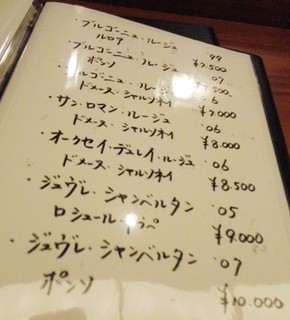 ・ブルゴーニュ・ルージュ '99
ルロア ¥7,500
・ブルゴーニュ・ルージュ '07
ポンソ ¥7,500
・ブルゴーニュ・ルージュ
ドメーヌ・シャルソネイ ¥7,000
・サン・ロマン・ルージュ '06
ドメーヌ・シャルソネイ ¥8,000
・オークセイ・デュレイ・ルージュ '06
ドメーヌ・シャルソネイ ¥8,500
・ジュヴレ・シャンベルタン '05
ロシュール ¥9,000
・ジュヴレ・シャンベルタン '07
ポンソ ¥10,000